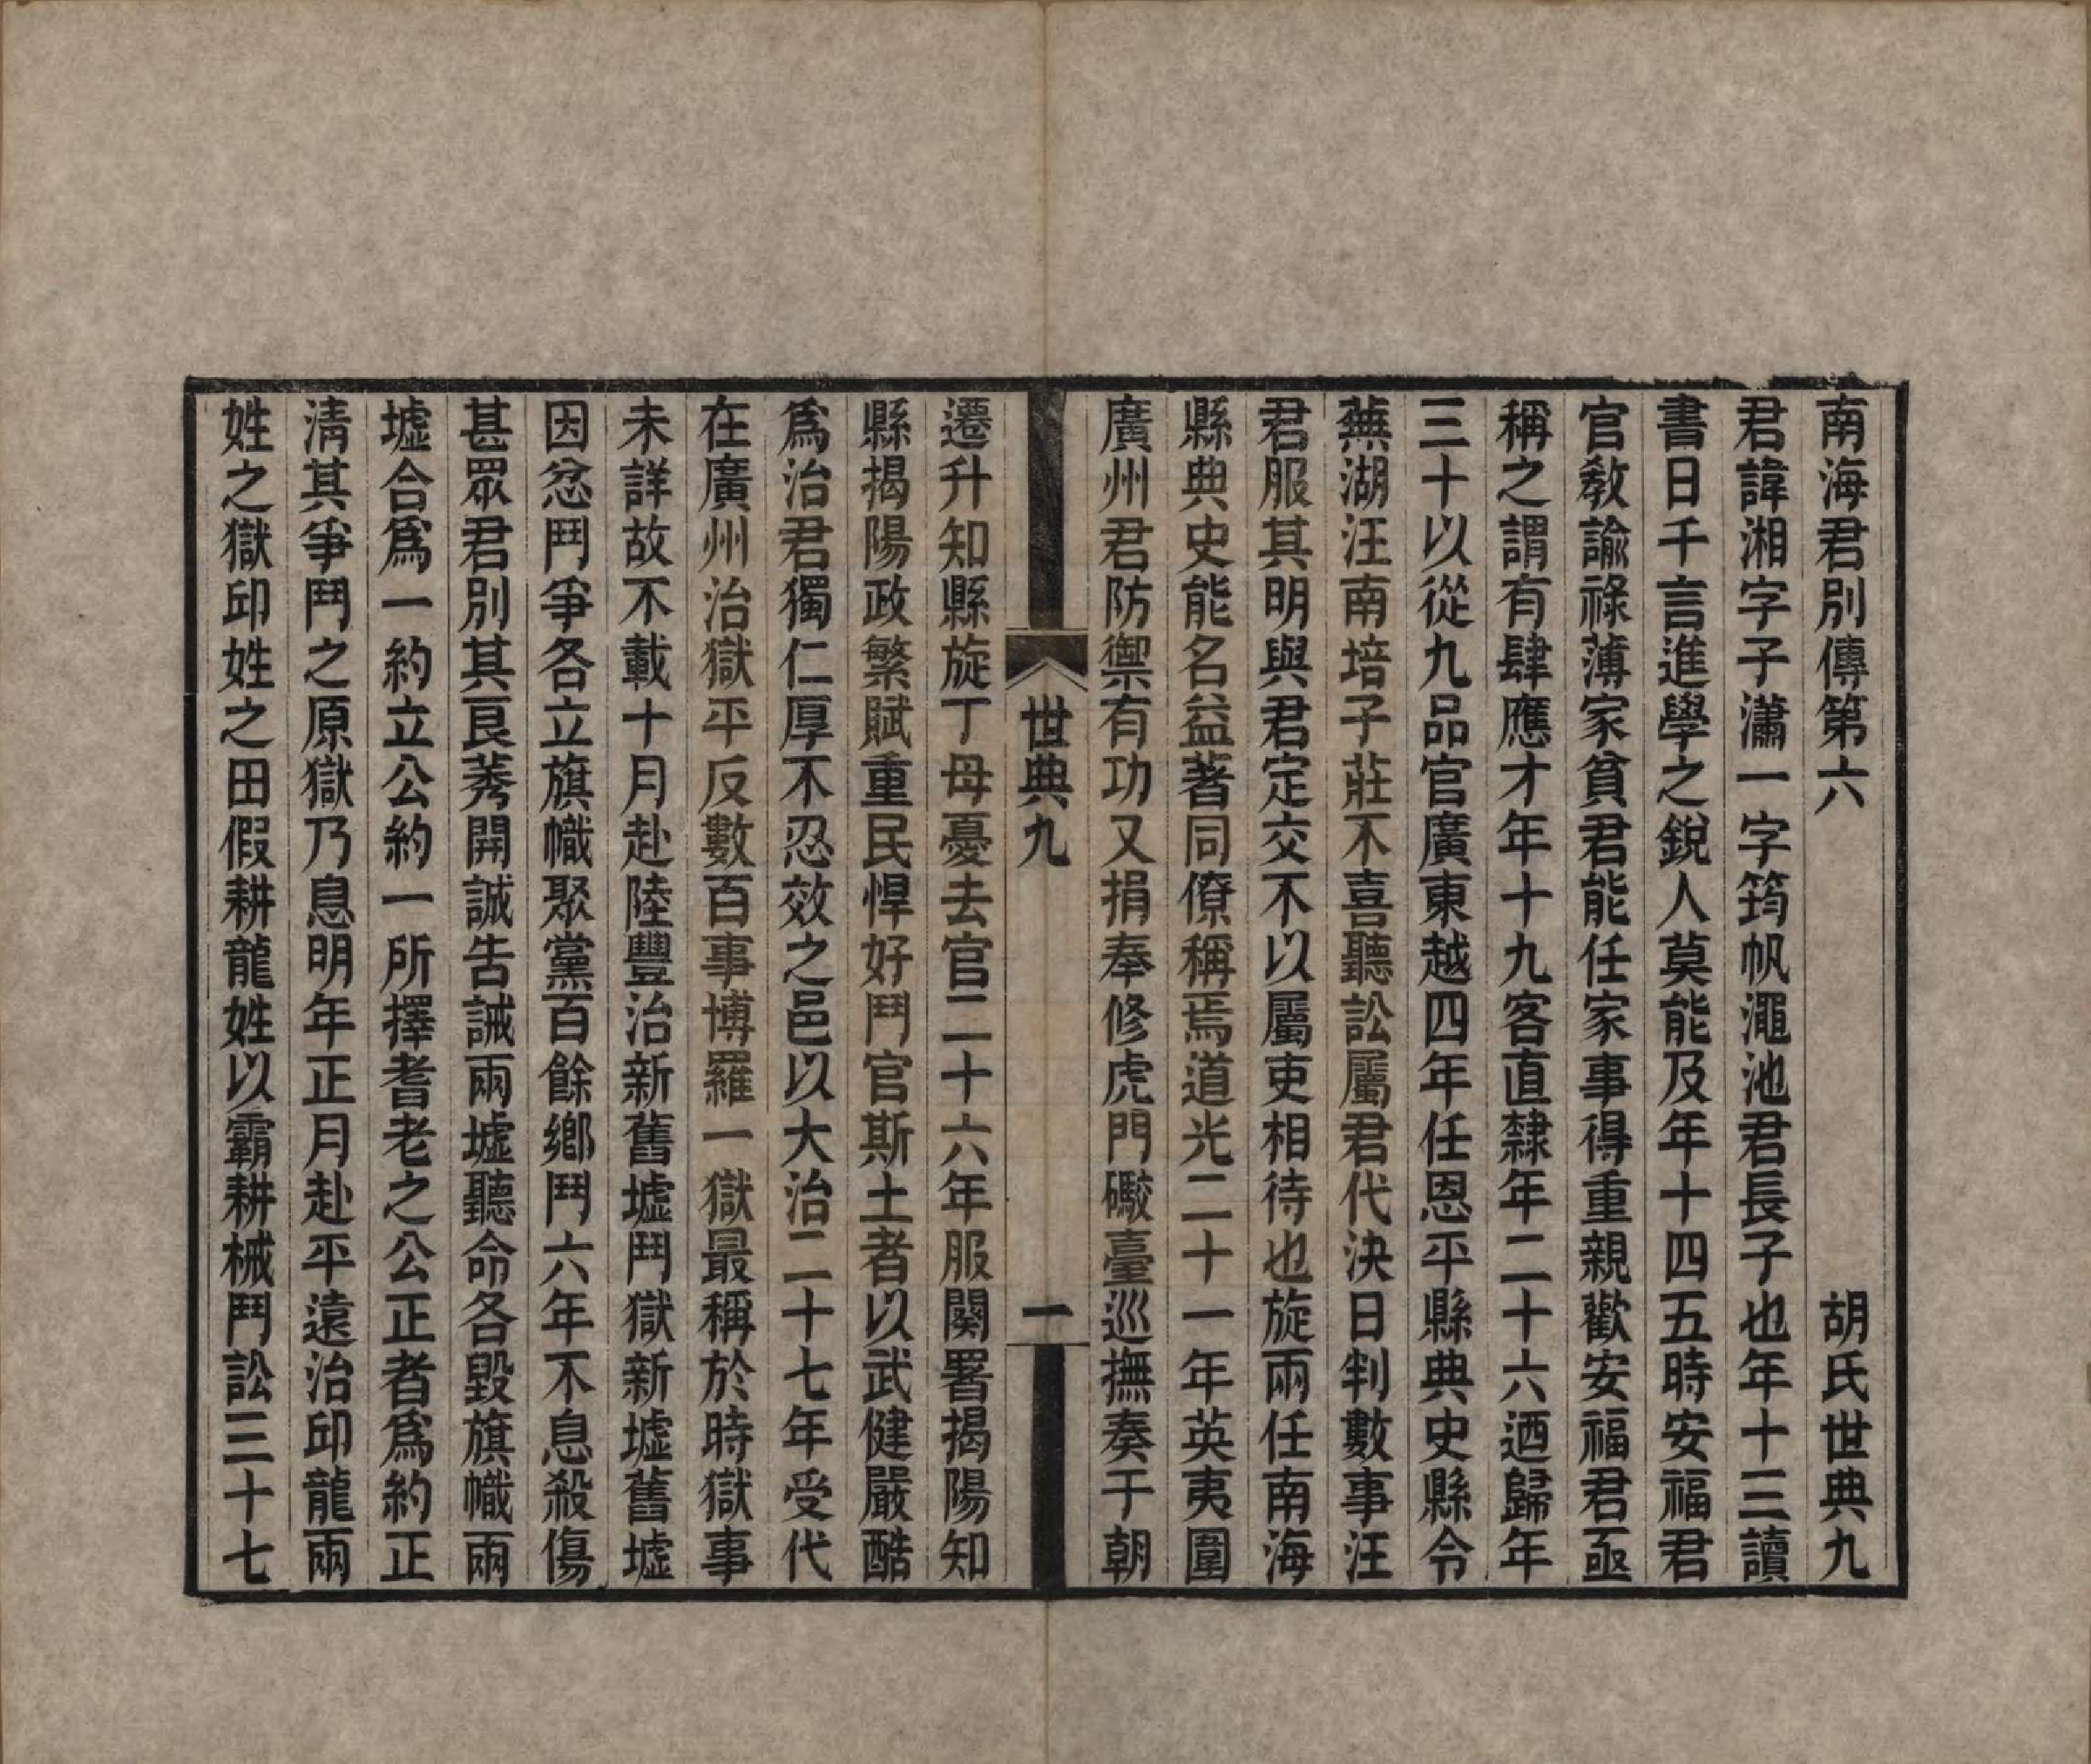 南海君別傳第六　胡氏世典九
君諱湘字子瀟一字筠帆澠池君長子也年十三讀
書日千言進學之銳人莫能及年十四五時安福君
官教諭祿薄家貧君能任家事得重親歡安福君亟
稱之謂有肆應才年十九客直隸年二十六迺歸年
三十以從九品官廣東越四年任恩平縣典史縣令
蕪湖汪南培子莊不喜聽訟屬君代決日判數事汪
君服其明與君定交不以屬吏相待也旋兩任南海
縣典史能名益著同僚稱焉道光二十一年英夷圍
廣州君防禦有功又捐奉修虎門礮臺巡撫奏于朝
世典九　一
遷升知縣旋丁母憂去官二十六年服闋署揭陽知
縣揭陽政繁賦重民悍好鬥官斯土者以武健嚴酷
為治君獨仁厚不忍效之邑以大治二十七年受代
在廣州治獄平反數百事博羅一獄最稱於時獄事
未詳故不載十月赴陸豐治新舊墟鬥獄新墟舊墟
因忿鬥爭各立旗幟聚黨百餘鄉鬥六年不息殺傷
甚眾君別其良莠開誠告誡兩墟聽命各毀旗幟兩
墟合為一約立公約一所擇耆老之公正者為約正
清其爭鬥之原獄乃息明年正月赴平遠治邱龍兩
姓之獄邱姓之田假耕龍姓以霸耕械鬥訟三十七